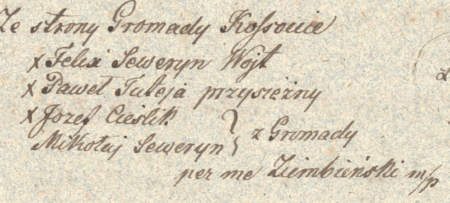 Ze strony Gromady Kossowice
x Felix Seweryn Wojt
x Paweł Tuleja przysiężny
x Jozef Cieślik
Mikołaj Seweryn } z Gromady
per me Ziembiński m/p